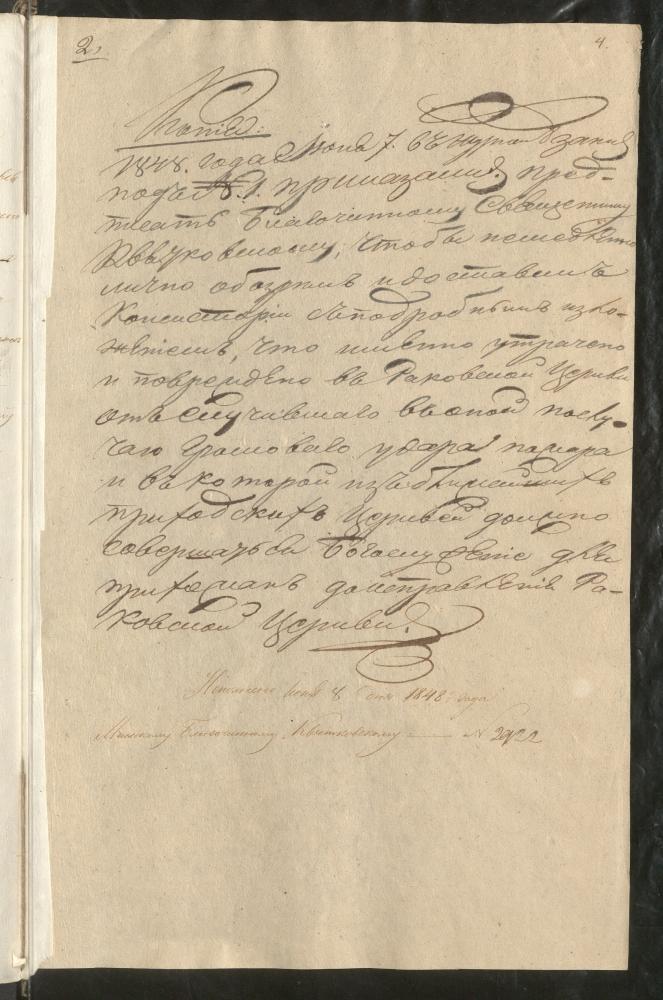 2.
4.
Копія:
1848. года Іюня 7. въ журналѣ записано
подъ № 1. приказанія: пред-
писать Благочинному Священнику
чтобы немедленно
лично обозрилъ и доставилъ
Консисторіи съ подробнымъ изло-
женіемъ, что именно утрачено
и повреждено въ Раковской Церкви
отъ случившаго въ оной по слу-
чаю громоваго удара пожара
и въ которой изъ ближайшихъ
приходскихъ Церквей должно
совершаться Богослуженіе для
прихожанъ до исправленія Ра-
ковской Церкви.
Исполнено Іюня 8 дня 1848 года
Минскому Благочинному Квятковскому — №